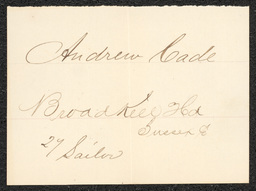 Andrew Cade
Broadkill Hd
Sussex
27 Sailor